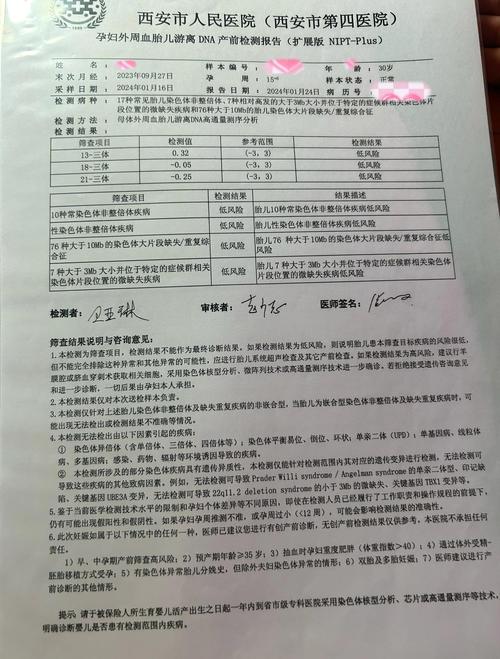 西安市人民医院（西安市第四医院）
孕妇外周血胎儿游离DNA产前检测报告（扩展版 NIPT-Plus）
姓 名： 样本编号： 年 龄： 30岁
末次月经： 2023年09月27日 孕 周： 15 样本状态： 正常
采样日期： 2024年01月16日 报告日期： 2024年01月24日 病历号：
检测病种： 17种常见胎儿染色体非整倍体、7种相对高发的大于3Mb大小并位于特定的症候群相关染色体片
段位置的微缺失疾病和76种大于10Mb的胎儿染色体大片段缺失/重复综合征
检测方法： 母体外周血胎儿游离DNA高通量测序分析
检测结果：
筛查项目 检测值 参考范围 检测结果
13-三体 0.32 (-3, 3) 低风险
18-三体 -0.05 (-3, 3) 低风险
21-三体 -0.25 (-3, 3) 低风险
筛查项目 检测结果 结果描述
10种常染色体非整倍体疾病 低风险 胎儿10种常染色体非整倍体疾病低风险
性染色体非整倍体疾病 低风险 胎儿性染色体非整倍体疾病低风险
76种大于10Mb的染色体大片段缺失/重复综合征 低风险 胎儿76 种大于10Mb的染色体大片段缺失/重复综合征低风险
7种大于3Mb大小并位于特定的症候群相关染色体片段位置的微缺失疾病 低风险 胎儿7种大于3Mb大小并位于特定的症候群相关染色体片段位置的微缺失疾病低风险
检测者： 审核者： 医师签名：
筛查结果说明与咨询意见：
1.本检测为筛查项目，检测结果不能作为最终诊断结果。如果检测结果为低风险，则说明胎儿患本筛查目标疾病的风险很低，
但不能完全排除这种异常和其他异常的可能性，应进行胎儿系统超声检查及其它产前检查。如果检测结果为高风险，建议行羊
膜腔或脐血穿刺术获取相关细胞，采用染色体核型分析、微阵列技术或高通量测序技术进一步确诊。若拒绝接受遗传咨询意见
和进一步诊断，一切后果由孕妇本人承担。
2.本检测结果仅对本次送检样本负责。
3.本检测仅针对上述胎儿染色体非整倍体及缺失重复疾病的非嵌合型，当胎儿为嵌合型染色体非整倍体及缺失重复疾病时，可
能出现无法检出或检测结果不准确的情况。
4.本检测无法检出由以下因素引起的疾病：
① 染色体异倍体（含单倍体、三倍体、四倍体等）；染色体平衡易位、倒位、环状；单亲二体（UPD）；单基因病、线粒体
病，多基因病；感染、药物、辐射等环境诱因导致的疾病。
② 本检测所涉及的部分染色体疾病具有遗传异质性，本检测仅能针对检测范围内其对应的遗传变异进行检测，无法检测可
导致这些疾病的其他致病因素。例如，无法检测可导致Prader Willi syndrome / Angelman syndrome 的单亲二体型、印记缺
陷、关键基因UBE3A变异，无法检测可导致22q11.2 deletion syndrome 的小于3Mb的微缺失、关键基因TBX1变异等。
5.鉴于当前医学检测技术水平的限制和孕妇个体差异等不同原因，即使在检测人员已经履行了工作职责和操作规程的前提下，
仍有可能出现假阳性和假阴性。如果孕妇孕周推测不准，或孕周过小（<12 周），可能会影响检测结果的准确性。
6.此次妊娠如属于以下情况中的任何一种，医师已建议您进行有创产前诊断，无创产前检测结果仅供参考，本医院不承担任何
责任。
1）早、中孕期产前筛查高风险；2）预产期年龄≥35岁；3）抽血时孕妇重度肥胖（体重指数>40）；4）通过体外受精-
胚胎移植方式受孕；5）有染色体异常胎儿分娩史，但除外夫妇染色体异常的情形；6）双胎及多胎妊娠；7）医师建议进行产
前诊断的其他情形。
提示：请于被保险人所生育婴儿活产出生之日起一年内到省市级专科医院采用染色体核型分析、芯片或高通量测序等技术，
明确诊断婴儿是否患有检测范围内疾病。